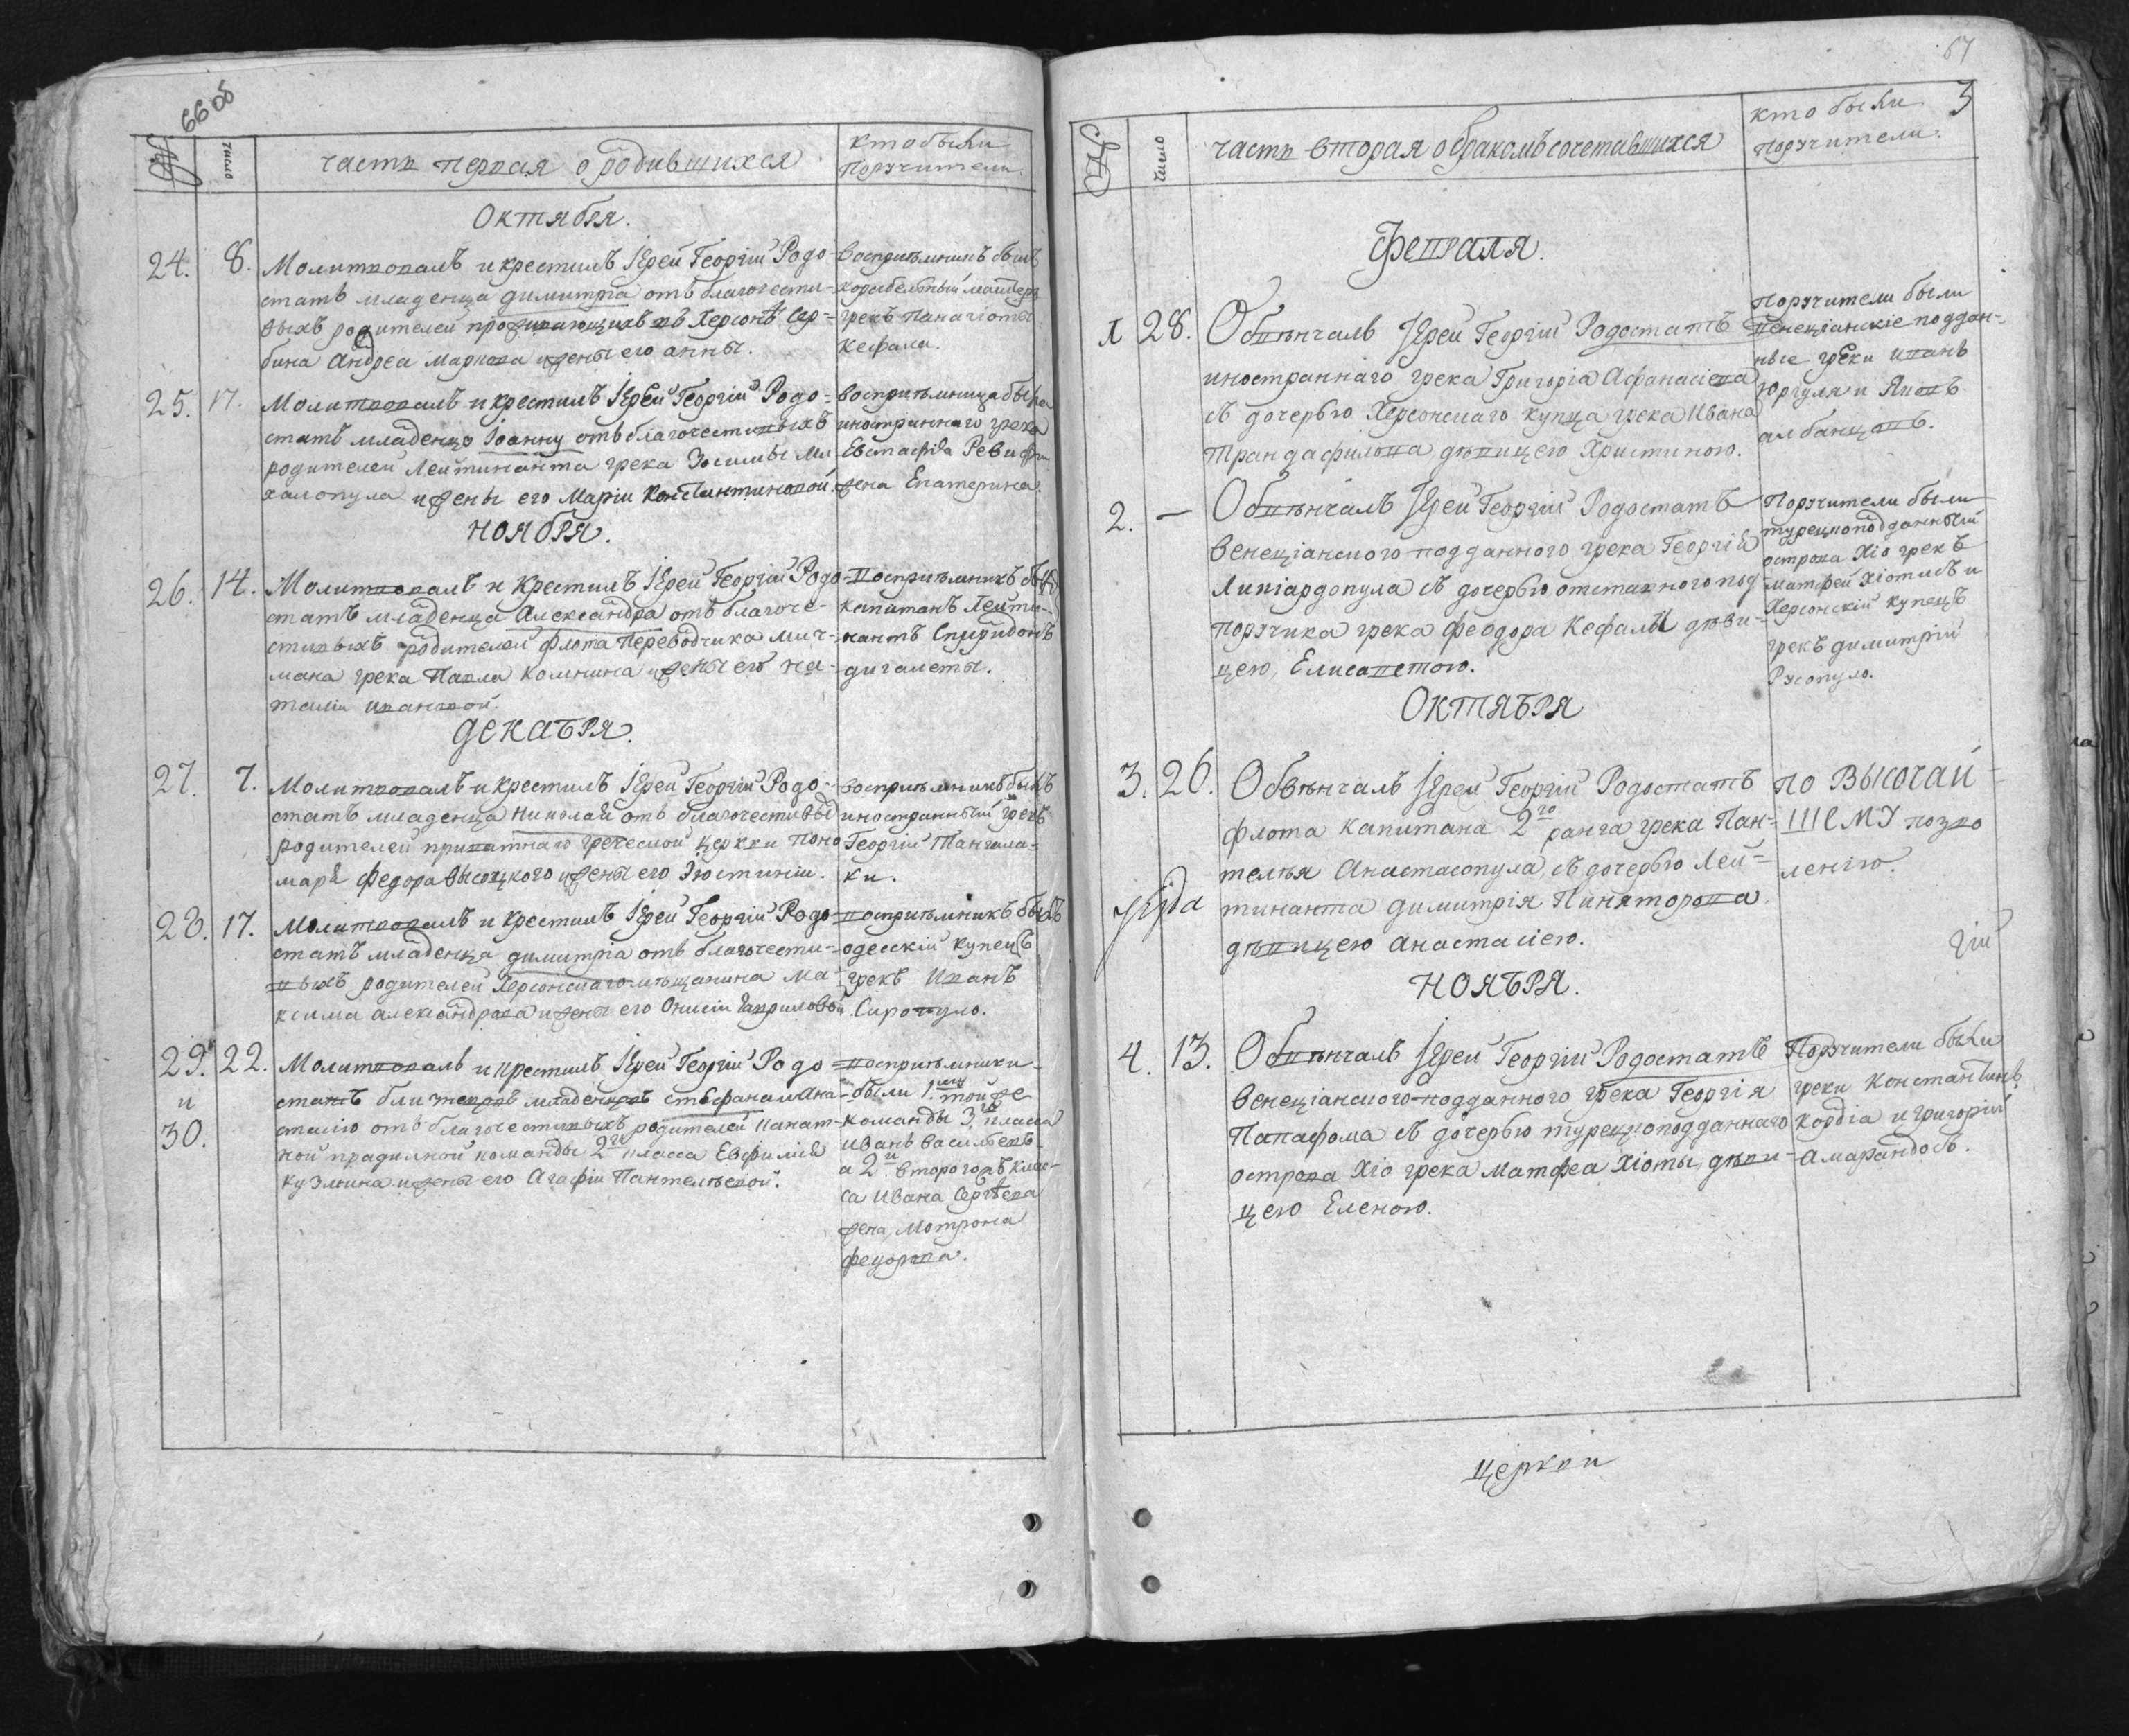 66 об
№
число
часть первая о родившихся
кто были
поручители.
Октября.
24. 8. Молитвовалъ и крестилъ Іерей Георгій Родо-
статъ младенца Димитріа отъ благочести-
выхъ родителей проживающихъ въ Херсонѣ Сер-
бина Андреа Маркова и жены его Анны.
Воспріемникъ былъ
корабельный мастеръ
грекъ Панагіоты
Кефала.
25. 17. Молитвовалъ и крестилъ Іерей Георгій Родо-
статъ младенца Іоанну отъ благочестивыхъ
родителей Лейтинанта грека Зосимы Ми-
халопула и жены его Маріи Константиновой.
воспріемница была
иностраннаго грека
Евстафіа
жена Екатерина.
Ноября.
26. 14. Молитвовалъ и крестилъ Іерей Георгій Родо-
статъ младенца Александра отъ благоче-
стивыхъ родителей флота переводчика мич-
мана грека Павла Комнина и жены его На-
таліи Ивановой.
Воспріемникъ былъ
капитанъ Лейти-
нантъ Спиридонъ
Дигалеты.
Декабря.
27. 7. Молитвовалъ и крестилъ Іерей Георгій Родо-
статъ младенца Николая отъ благочестивы
родителей приватнаго греческой церкви поно
маря Федора Высоцкого и жены его Іюстиніи.
воспріемникъ былъ
иностранный грекъ
Георгій Мангала-
ки.
28. 17. Молитвовалъ и крестилъ Іерей Георгій Родо-
статъ младенца Димитріа отъ благочести-
выхъ родителей Херсонскаго мѣщанина Ма-
ксима Александрова и жены его Онисіи Гавриловой
воспріемникъ былъ
одесскій купецъ
грекъ Иванъ
Сиропуло.
29. 22. Молитвовалъ и крестилъ Іерей Георгій Родо
и статъ близнецовъ младенцовъ Стефана и Ана-
30. стасію отъ благочестивыхъ родителей канат-
ной прядилной команды 2й класса Евфиміа
Кузмина и жены его Агафіи Пантелѣевой.
воспріемники
были 1. той же
команды 3й класса
Иванъ Васильевъ
а 2й второго класс-
са Ивана Сергѣева
жена Мотрона
Федорова.
67
3
№
число
часть вторая о бракомъ сочетавшихся
кто были
поручители.
Февраля.
1 28. Обвѣнчалъ Іерей Георгій Родостатъ
иностраннаго грека Григоріа Афанасіева
съ дочерью Херсонскаго купца грека Ивана
Трандафилова дѣвицею Христиною.
Поручители были
Венеціанскіе поддан-
ные греки Иванъ
Юргула и Яковъ
албанцовъ.
2. — Обвѣнчалъ Іерей Георгій Родостатъ
Венеціанского подданного грека Георгіа
Ликіардопула съ дочерью отставного под
поручика грека Феодора Кефалы дѣви-
цею, Елисаветою.
Поручители были
турецкоподданный
острова Хіо грекъ
Матфей Хіотисъ и
Херсонскій купецъ
грекъ Димитрій
Русопуло.
Октября
3. 26. Обвѣнчалъ Іерей Георгій Родостатъ
флота капитана 2го ранга грека Пан-
телѣя Анастасопула, съ дочерью Лей-
тинанта Димитріа Пиняторова
дѣвицею Анастасіею.
по Высочай-
шему позво
ленію.
гій
Ноября.
4. 13. Обвѣнчалъ Іерей Георгій Родостатъ
Венеціанского подданного грека Георгія
Папафома съ дочерью турецкоподданнаго
острова Хіо грека Матфеа Хіоты, дѣви-
цею Еленою.
Поручители были
греки Константинъ
Кордіа и Григорій
Амарандосъ.
церкви